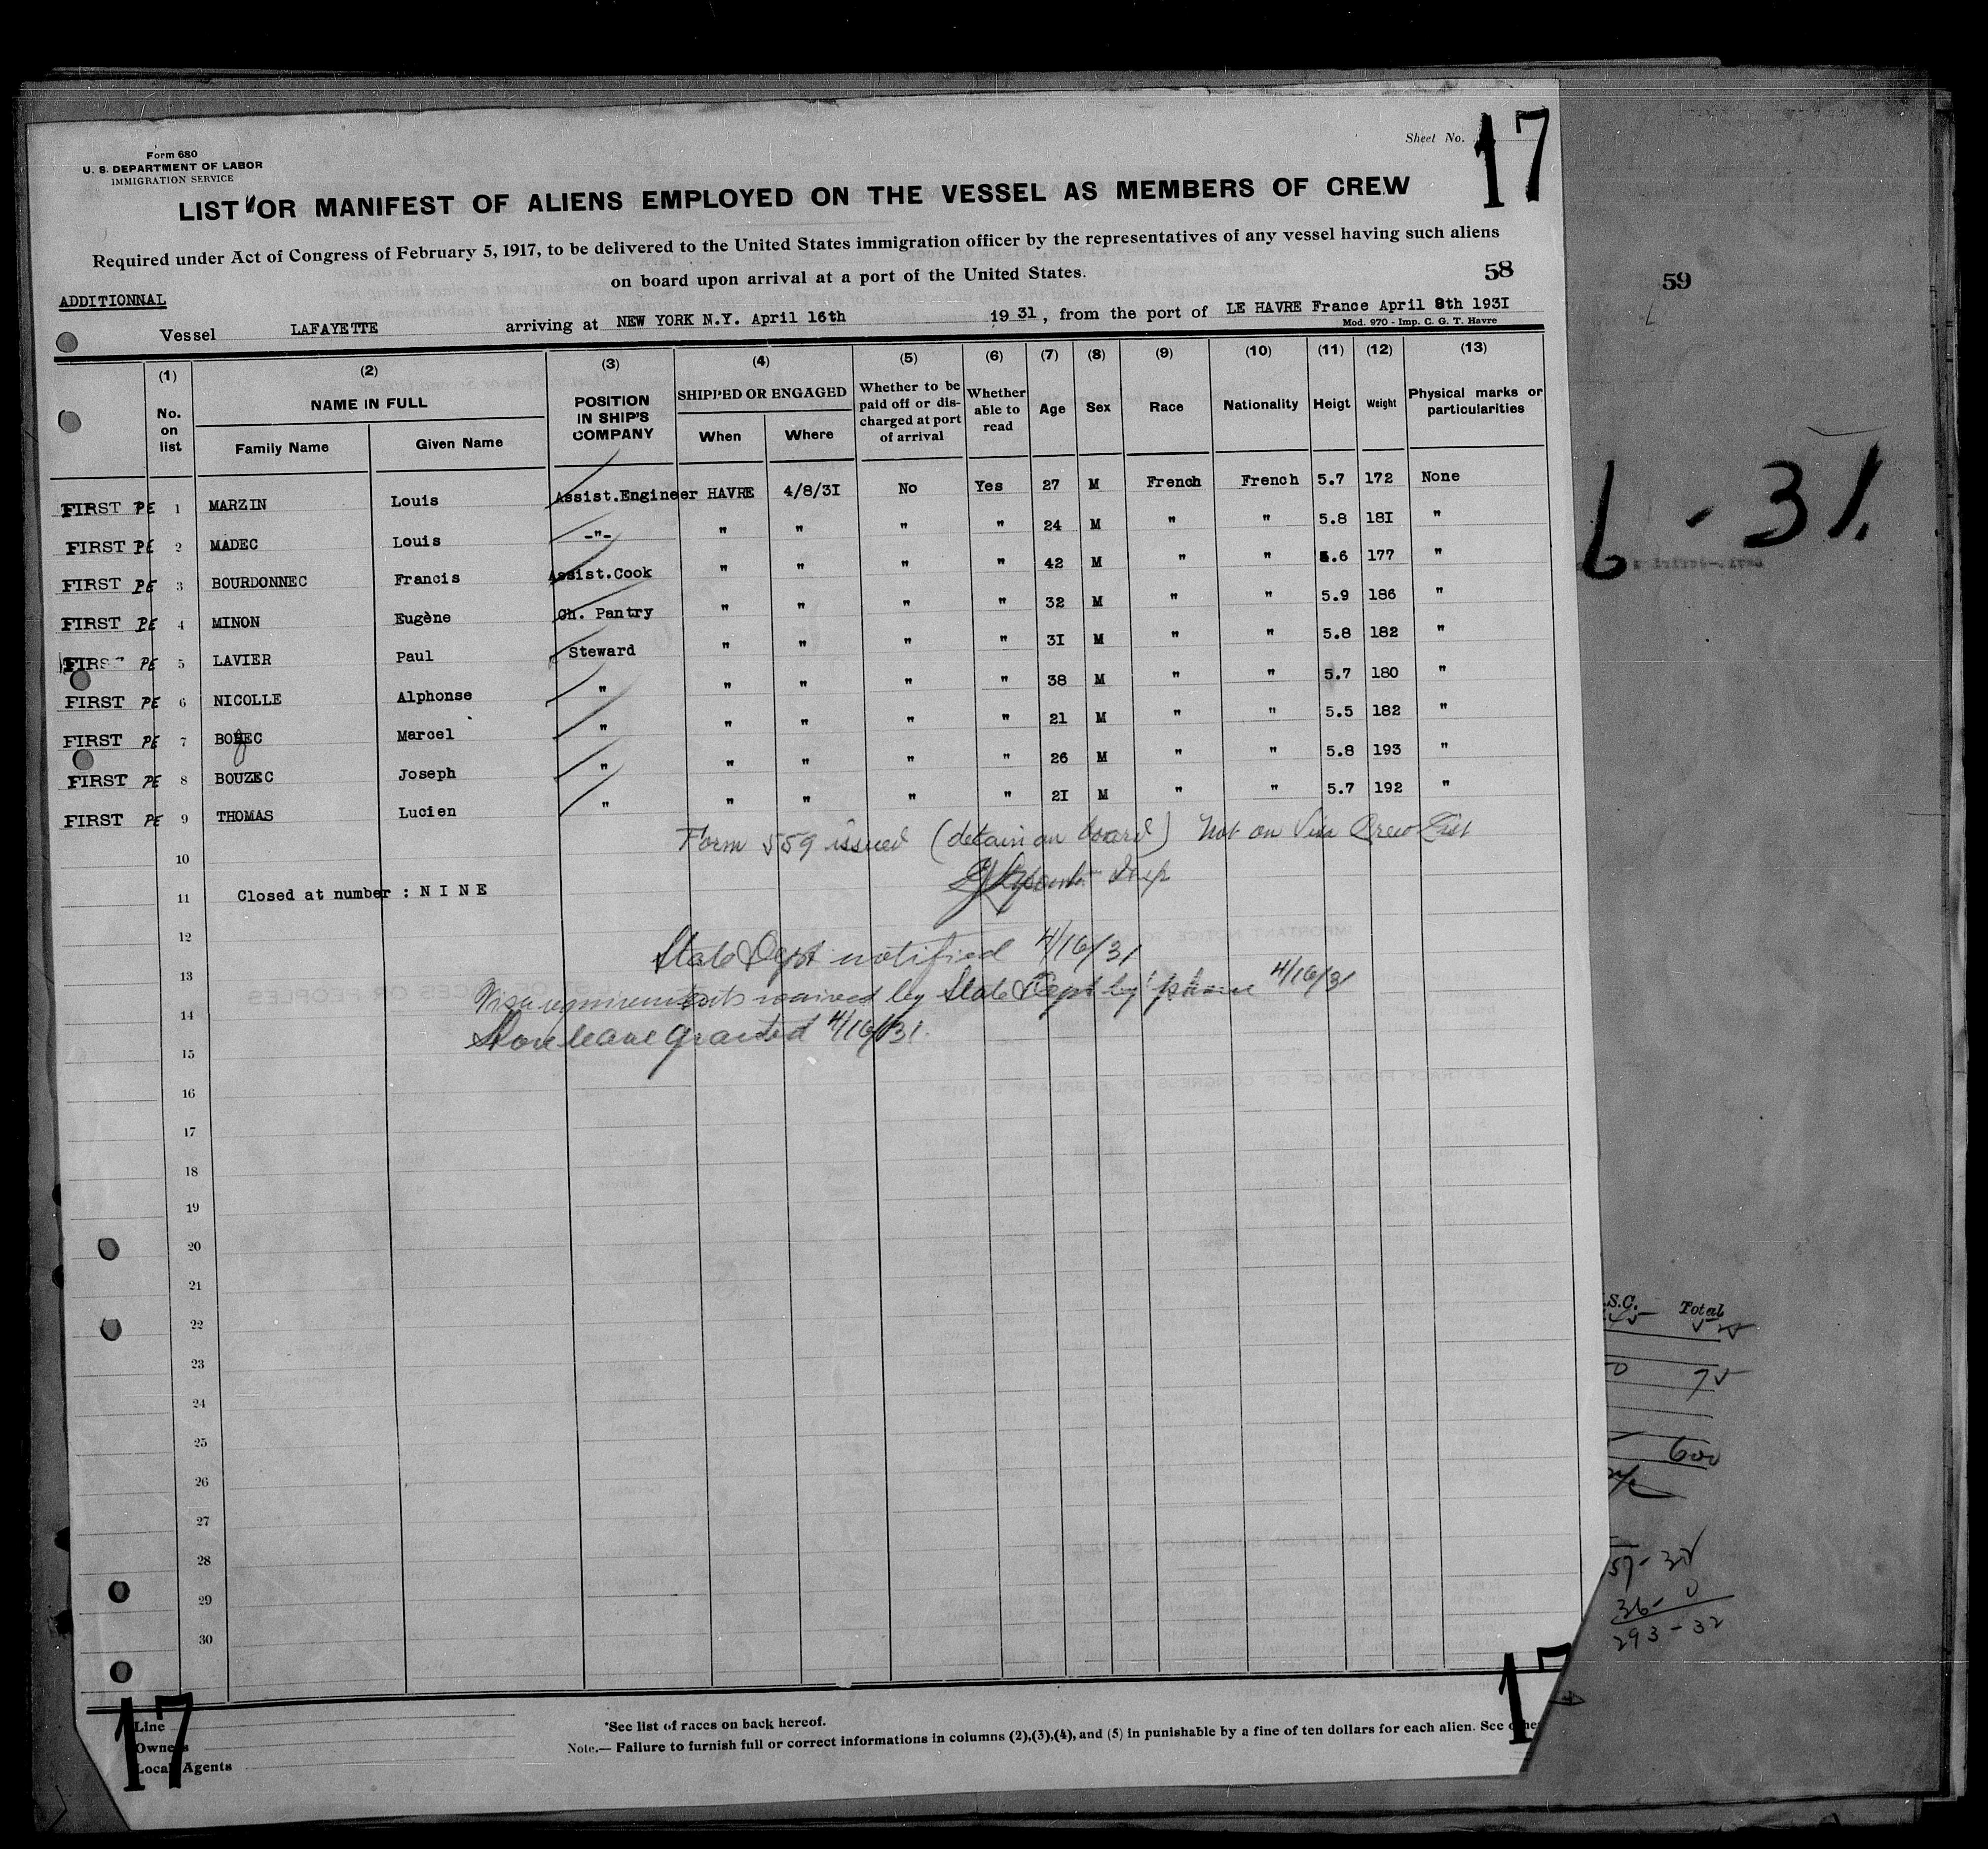 Form 680
U. S. DEPARTMENT OF LABOR
IMMIGRATION SERVICE
Sheet No. 17
LIST OR MANIFEST OF ALIENS EMPLOYED ON THE VESSEL AS MEMBERS OF CREW
Required under Act of Congress of February 5, 1917, to be delivered to the United States immigration officer by the representatives of any vessel having such aliens
on board upon arrival at a port of the United States.
58
59
ADDITIONNAL
Vessel LAFAYETTE arriving at NEW YORK N.Y. April 16th 1931, from the port of LE HAVRE France April 8th 1931
Mod. 970 - Imp. C. G. T. Havre
(1) (2) (3) (4) (5) (6) (7) (8) (9) (10) (11) (12) (13)
No. on list NAME IN FULL Family Name Given Name POSITION IN SHIP'S COMPANY SHIPPED OR ENGAGED When Where Whether to be paid off or discharged at port of arrival Whether able to read Age Sex Race Nationality Heigt Weight Physical marks or particularities
FIRST PE 1 MARZIN Louis Assist.Engineer HAVRE 4/8/31 No Yes 27 M French French 5.7 172 None
FIRST PE 2 MADEC Louis -"- " " " " 24 M " " 5.8 181 "
FIRST PE 3 BOURDONNEC Francis Assist.Cook " " " " 42 M " " 5.6 177 "
FIRST PE 4 MINON Eugène Ch. Pantry " " " " 32 M " " 5.9 186 "
FIRST PE 5 LAVIER Paul Steward " " " " 31 M " " 5.8 182 "
FIRST PE 6 NICOLLE Alphonse " " " " " 38 M " " 5.7 180 "
FIRST PE 7 Marcel " " " " " 21 M " " 5.5 182 "
FIRST PE 8 BOUZEC Joseph " " " " " 26 M " " 5.8 193 "
FIRST PE 9 THOMAS Lucien " " " " " 21 M " " 5.7 192 "
Form 559 issued (detain on board) Not on Visa Crew List
10
Insp
11 Closed at number : N I N E
12
State Dept notified 4/16/31
13
Visa requirements waived by State Dept by 'phone 4/16/31
14
Shore leave granted 4/16/31.
15
16
17
18
19
20
21
22
23
24
25
26
27
28
29
30
6 - 31.
S.C. Total
75
600
59-32
36- 0
293-32
17
17
Line
Owners
Local Agents
*See list of races on back hereof.
Note.— Failure to furnish full or correct informations in columns (2),(3),(4), and (5) in punishable by a fine of ten dollars for each alien. See